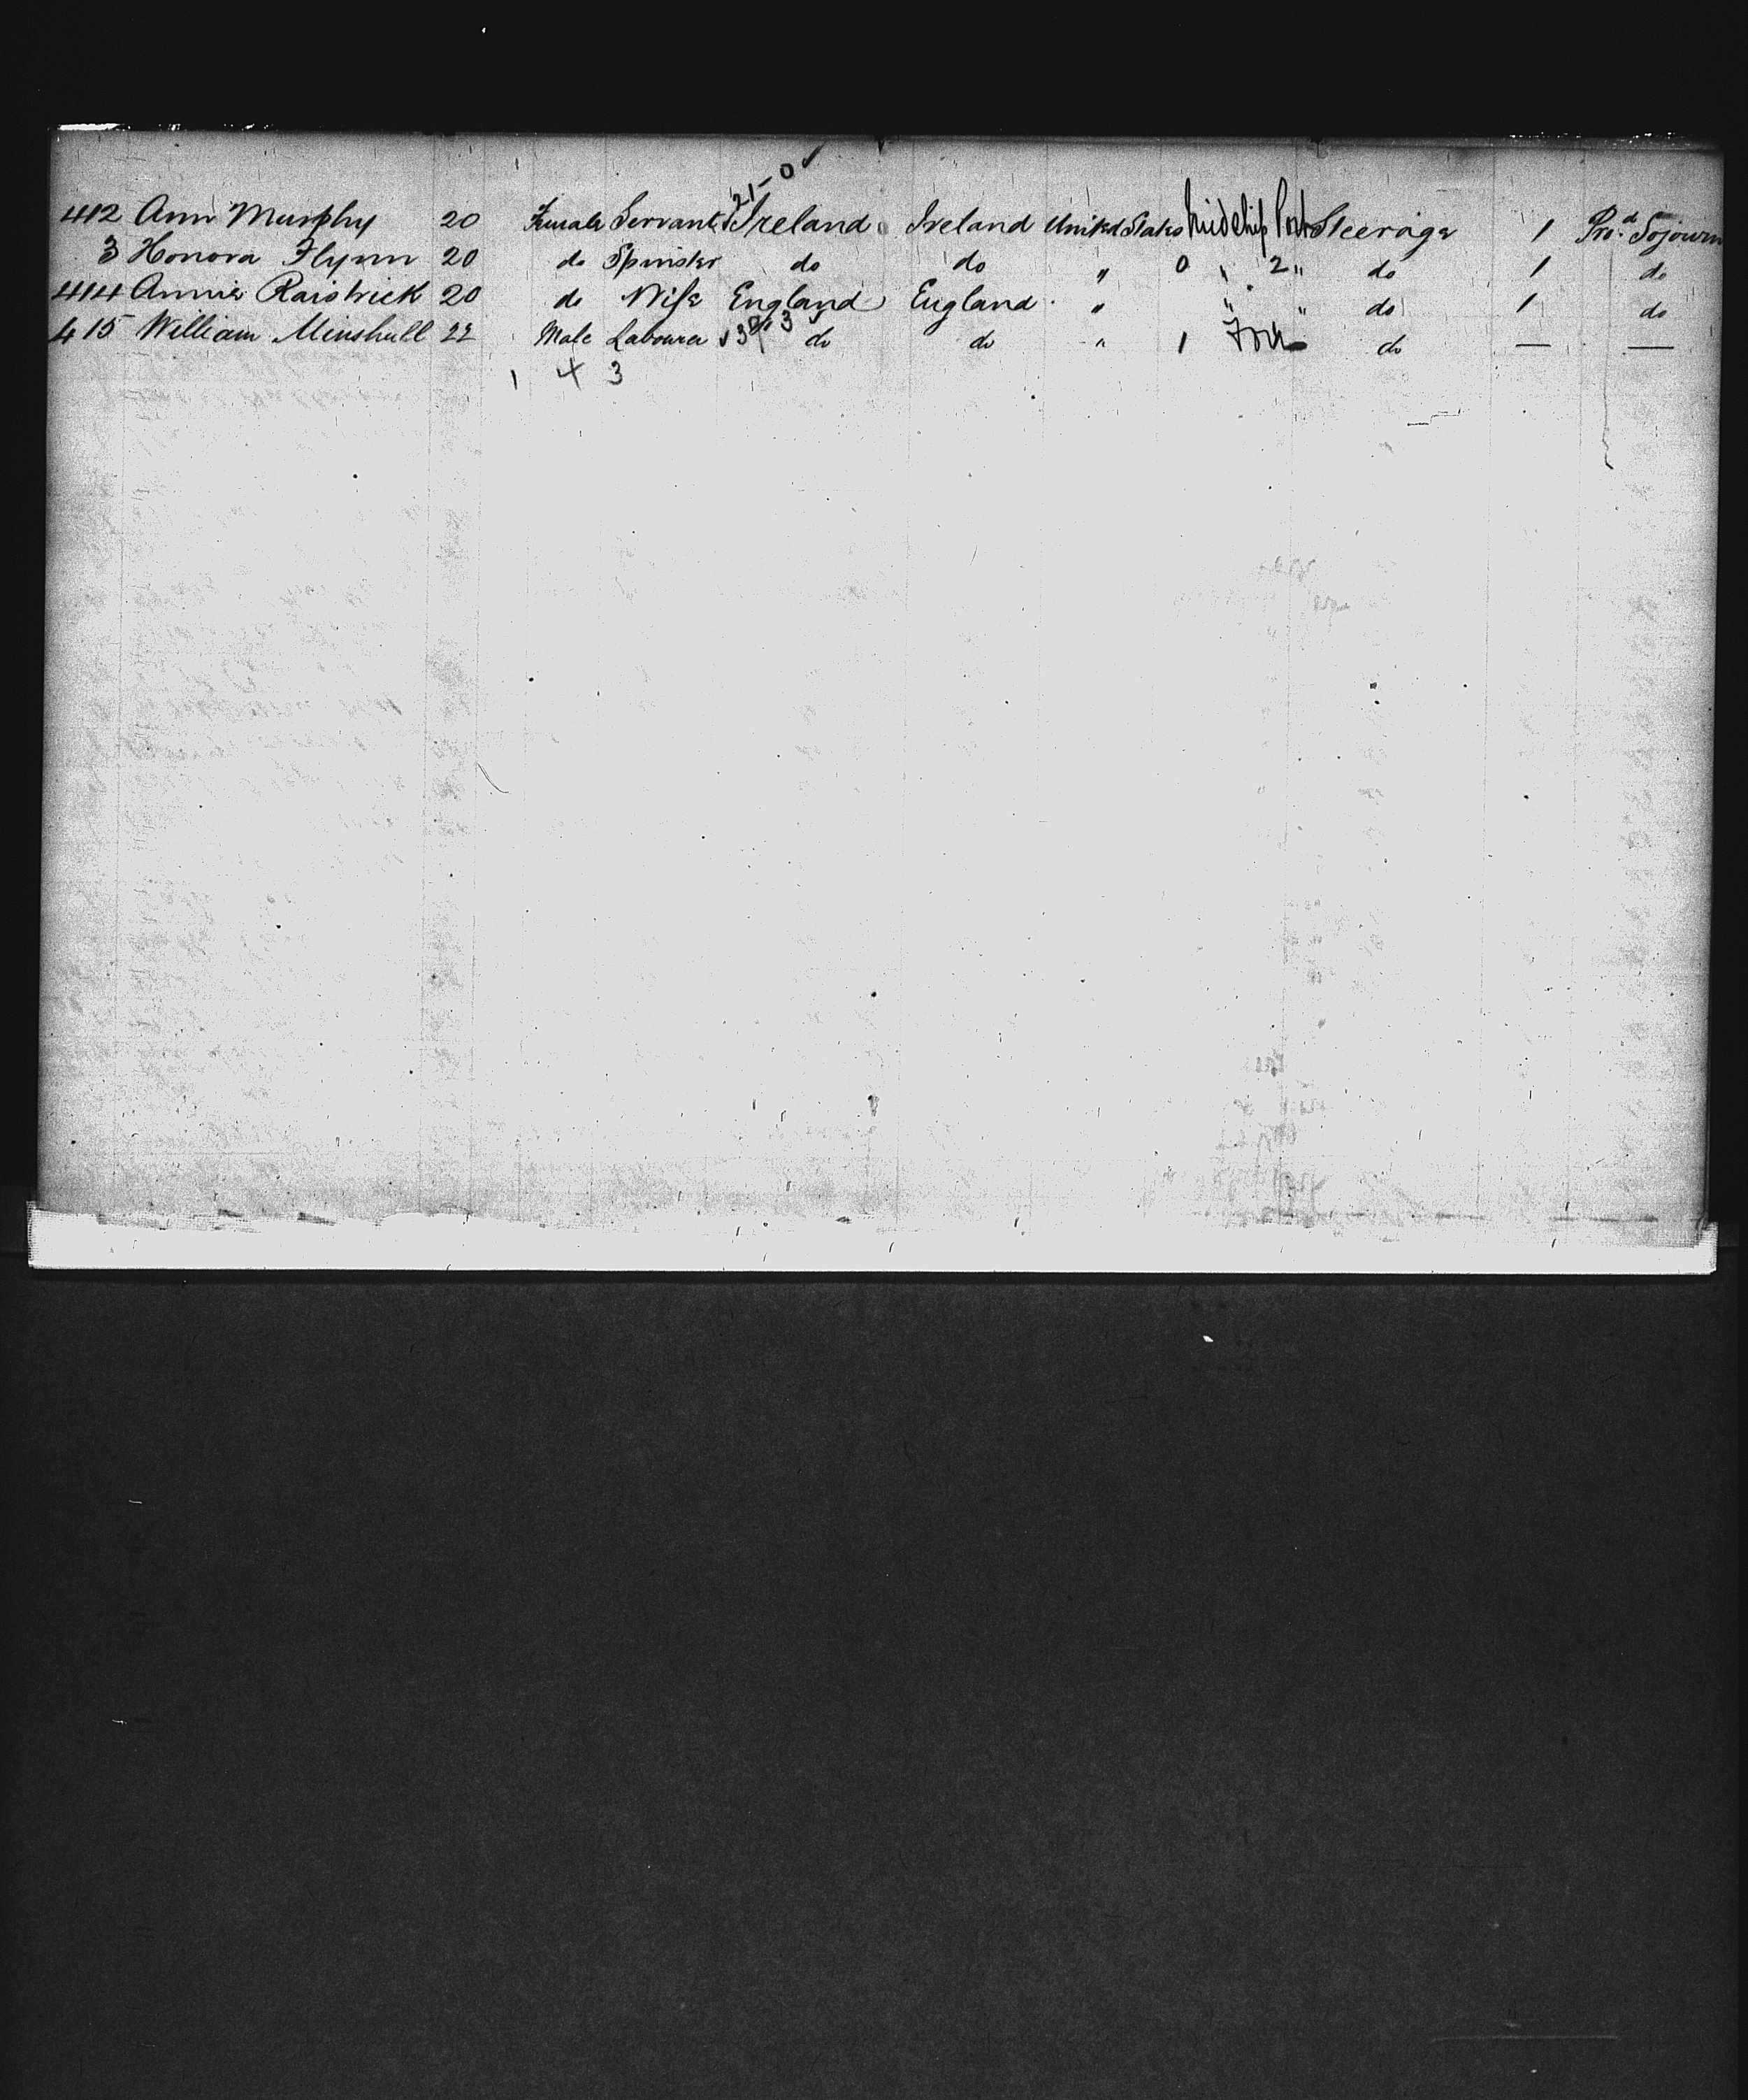 21-0 ✓
412 Ann Murphy 20 Female Servant Ireland Ireland United States Midship Port Steerage 1 Pro.d Sojourn
3 Honora Flynn 20 do Spinster do do " 0 " 2 " do 1 do
414 Annie Raistrick 20 do Wife England England " " " do 1 do
415 William Minshull 22 Male Labourer do do " 1 do — —
1 4 3